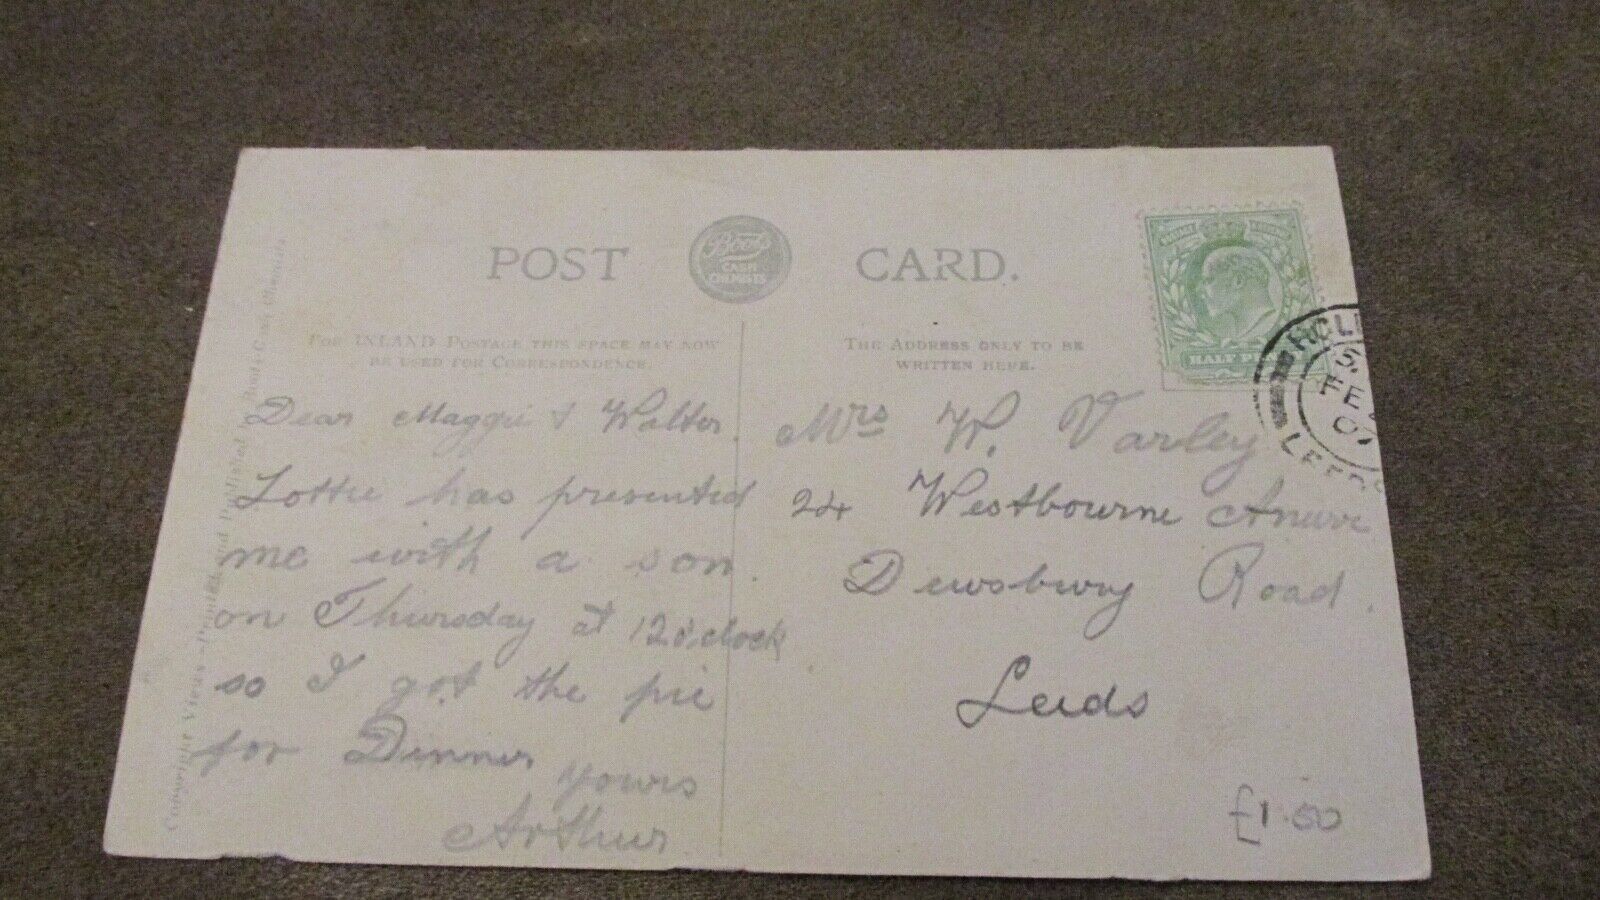 POST CARD.
Boots
CASH
CHEMISTS
FOR INLAND POSTAGE THIS SPACE MAY NOW
BE USED FOR CORRESPONDENCE.
THE ADDRESS ONLY TO BE
WRITTEN HERE.
HALF
LEEDS
Dear Maggie & Walter.
Lottie has presented
me with a son.
on Thursday at 12 o'clock
so I got the pie
for Dinner
yours
Arthur
Mrs W. Varley
24 Westbourne Avenue
Dewsbury Road.
Leeds
£1.00
Copyright Views - and Published Boots Cash Chemists